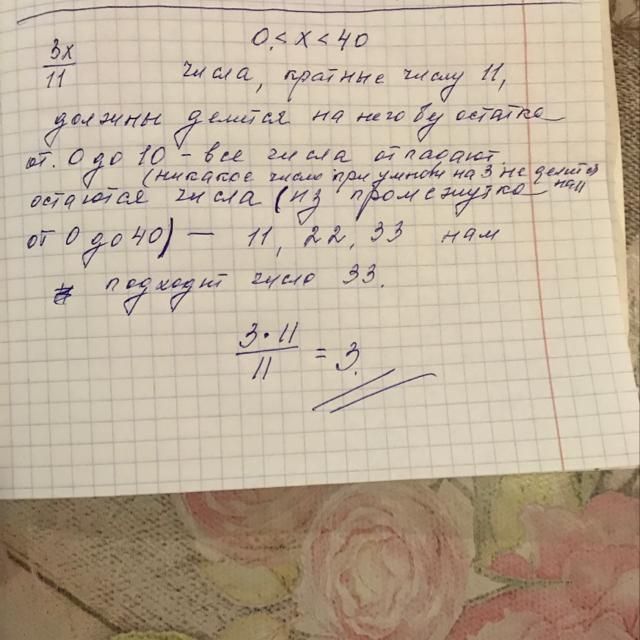 0 < x < 40
3x
11
числа, кратные числу 11,
должны делится на него без остатка
от 0 до 10 - все числа отпадают
(никакое число при умнож на 3 не делится
нам
остаются числа (из промежутка
от 0 до 40) — 11, 22, 33 нам
подходит число 33.
3·11
11
= 3.